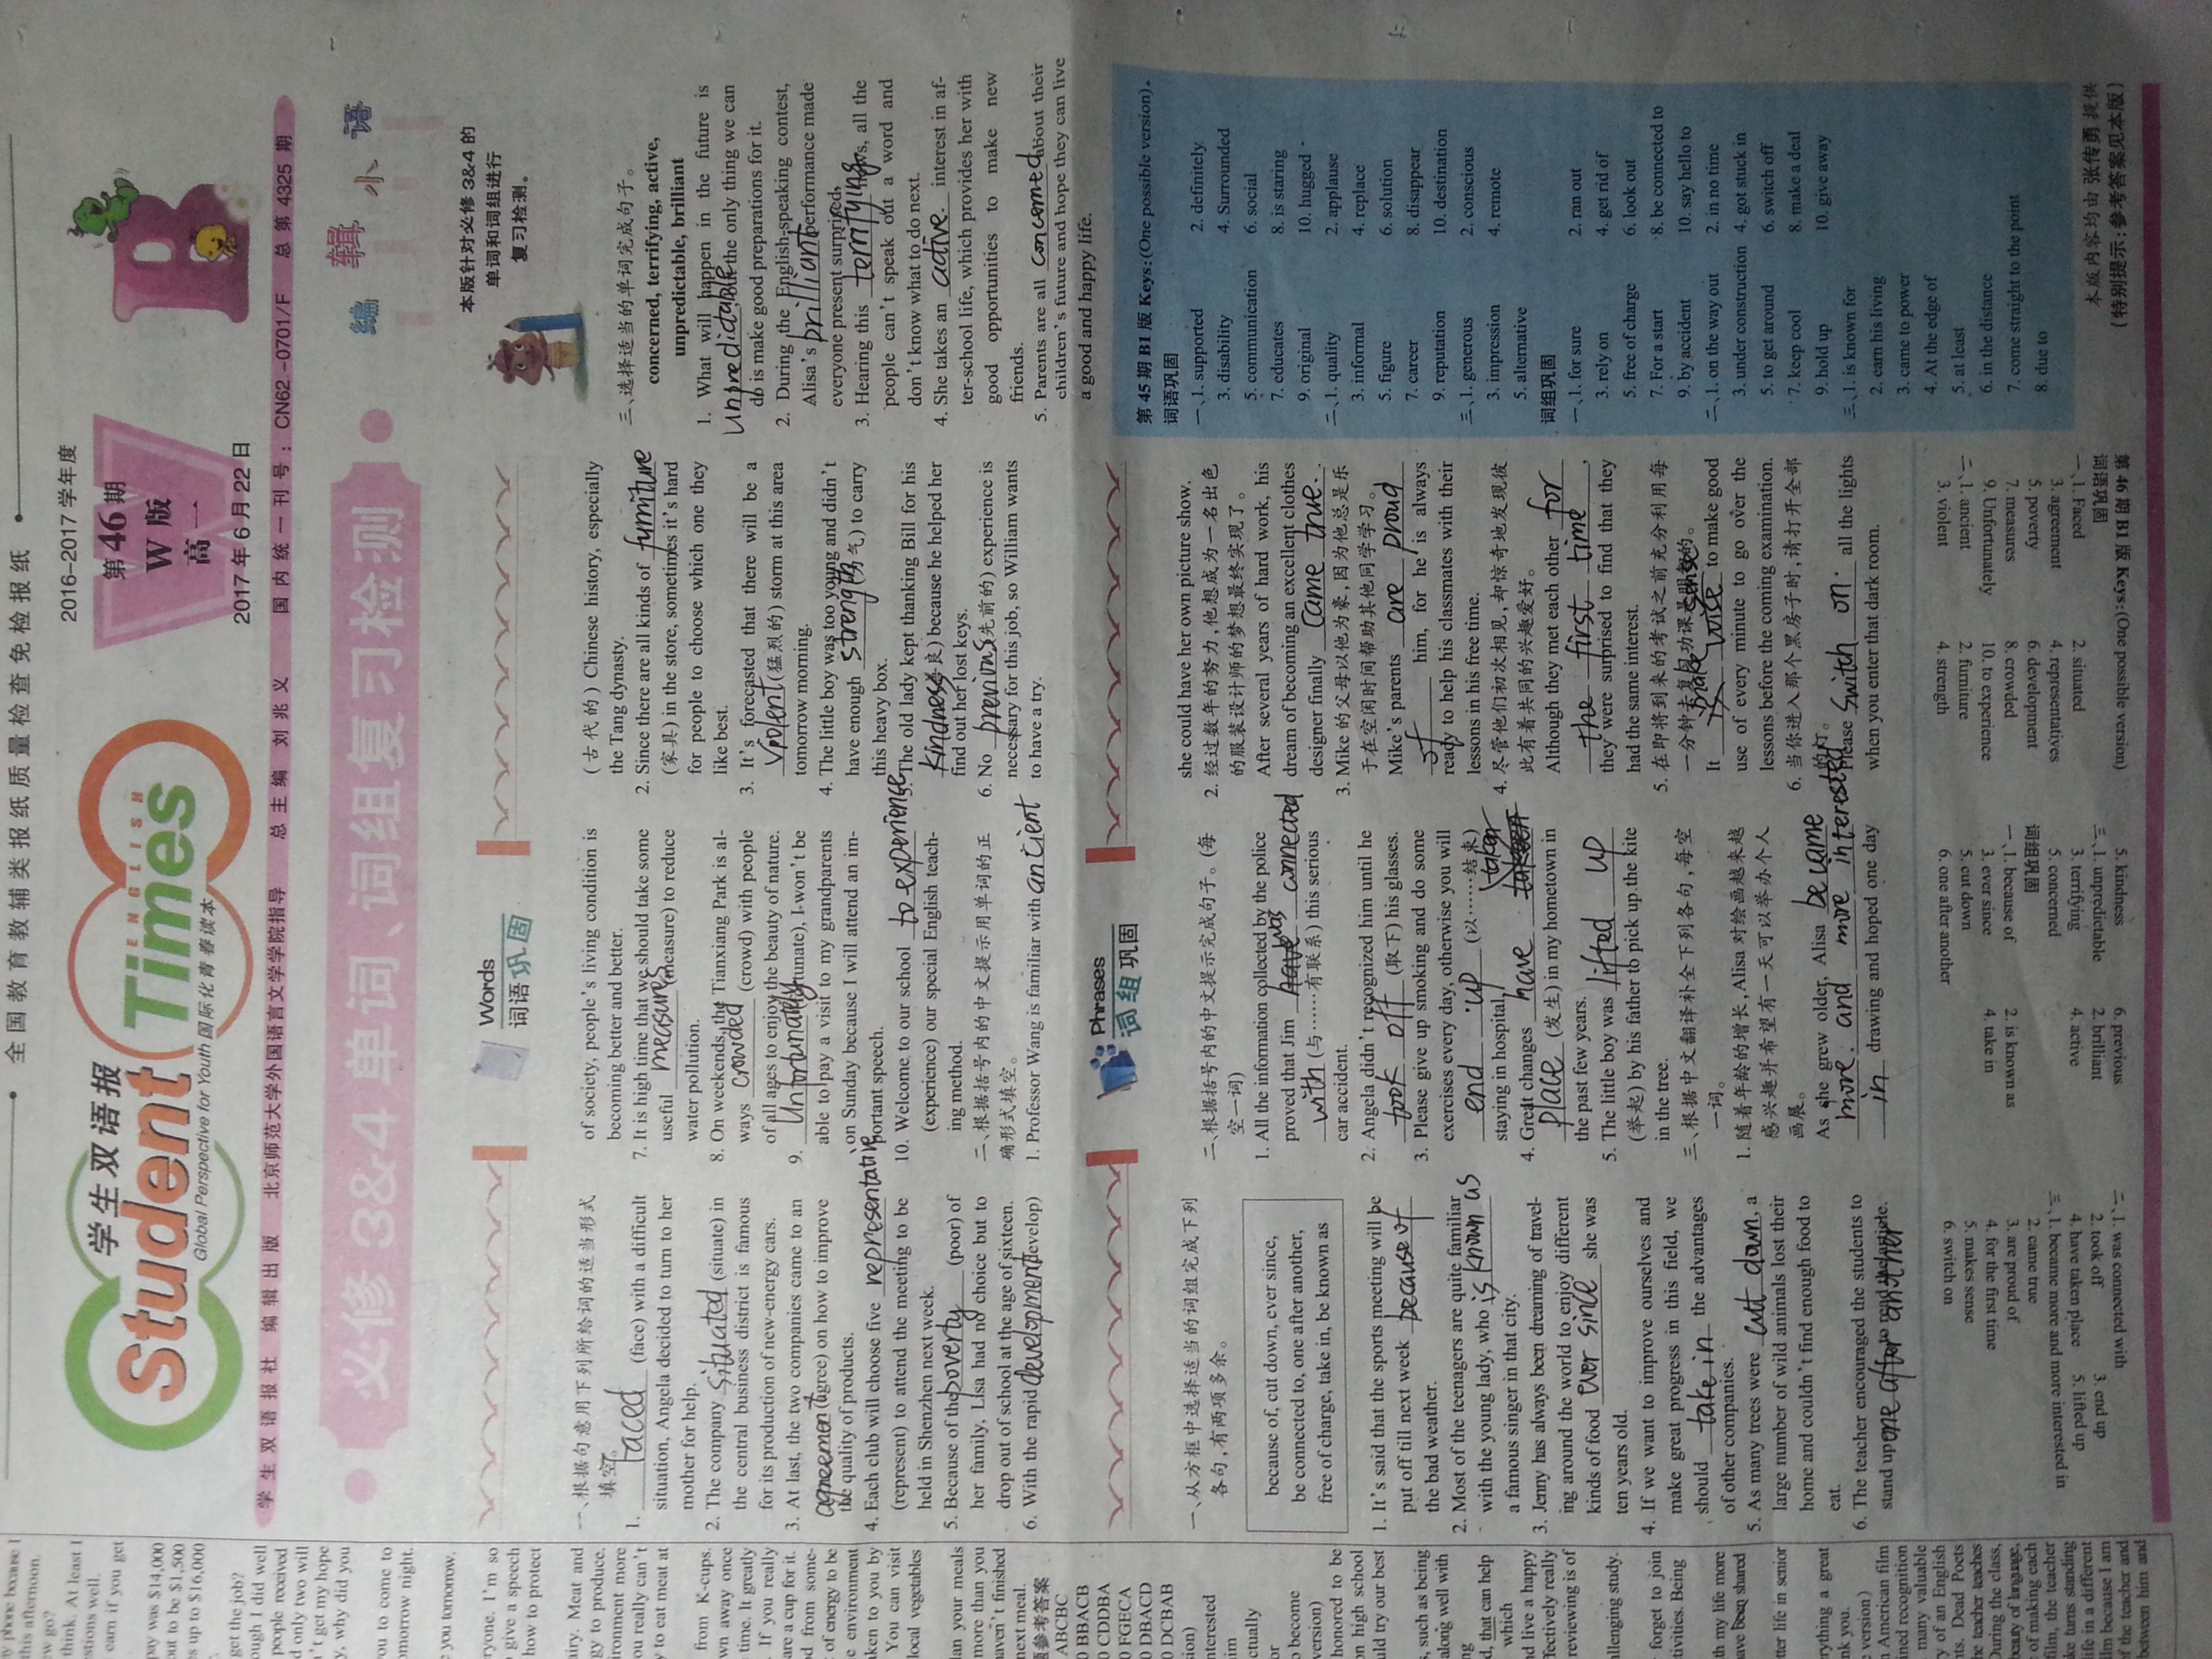 全国教育教辅类报纸质量检查免检报纸
学生双语报
Student Times
ENGLISH
Global Perspective for Youth 国际化青春读本
2016-2017 学年度
第 46 期
W 版
高一
2017 年 6 月 22 日
B
学生双语报社 编辑出版 北京师范大学外国语言文学学院指导 总主编 刘兆义 国内统一刊号: CN62-0701/F 总第 4325 期
必修 3&4 单词、词组复习检测
编辑小语
本版针对必修 3&4 的
单词和词组进行
复习检测。
Words
词语巩固
一、根据句意用下列所给词的适当形式
填空。
1. Faced (face) with a difficult
situation, Angela decided to turn to her
mother for help.
2. The company situated (situate) in
the central business district is famous
for its production of new-energy cars.
3. At last, the two companies came to an
agreement (agree) on how to improve
the quality of products.
4. Each club will choose five representative
(represent) to attend the meeting to be
held in Shenzhen next week.
5. Because of the poverty (poor) of
her family, Lisa had no choice but to
drop out of school at the age of sixteen.
6. With the rapid development (develop)
of society, people's living condition is
becoming better and better.
7. It is high time that we should take some
useful measures (measure) to reduce
water pollution.
8. On weekends, the Tianxiang Park is al-
ways crowded (crowd) with people
of all ages to enjoy the beauty of nature.
9. Unfortunately (fortunate), I won't be
able to pay a visit to my grandparents
on Sunday because I will attend an im-
portant speech.
10. Welcome to our school to experience
(experience) our special English teach-
ing method.
二、根据括号内的中文提示用单词的正
确形式填空。
1. Professor Wang is familiar with ancient
(古代的) Chinese history, especially
the Tang dynasty.
2. Since there are all kinds of furniture
(家具) in the store, sometimes it's hard
for people to choose which one they
like best.
3. It's forecasted that there will be a
violent (猛烈的) storm at this area
tomorrow morning.
4. The little boy was too young and didn't
have enough strength (力气) to carry
this heavy box.
5. The old lady kept thanking Bill for his
kindness (善良) because he helped her
find out her lost keys.
6. No previous (先前的) experience is
necessary for this job, so William wants
to have a try.
三、选择适当的单词完成句子。
concerned, terrifying, active,
unpredictable, brilliant
1. What will happen in the future is
unpredictable, but the only thing we can
do is make good preparations for it.
2. During the English-speaking contest,
Alisa's brilliant performance made
everyone present surprised.
3. Hearing this terrifying news, all the
people can't speak out a word and
don't know what to do next.
4. She takes an active interest in af-
ter-school life, which provides her with
good opportunities to make new
friends.
5. Parents are all concerned about their
children's future and hope they can live
a good and happy life.
Phrases
词组巩固
一、从方框中选择适当的词组完成下列
各句,有两项多余。
because of, cut down, ever since,
be connected to, one after another,
free of charge, take in, be known as
1. It's said that the sports meeting will be
put off till next week because of
the bad weather.
2. Most of the teenagers are quite familiar
with the young lady, who is known as
a famous singer in that city.
3. Jenny has always been dreaming of travel-
ing around the world to enjoy different
kinds of food ever since she was
ten years old.
4. If we want to improve ourselves and
make great progress in this field, we
should take in the advantages
of other companies.
5. As many trees were cut down, a
large number of wild animals lost their
home and couldn't find enough food to
eat.
6. The teacher encouraged the students to
stand up one after another to read the article.
二、根据括号内的中文提示完成句子。(每
空一词)
1. All the information collected by the police
proved that Jim have was connected
with (与……有联系) this serious
car accident.
2. Angela didn't recognized him until he
took off (取下) his glasses.
3. Please give up smoking and do some
exercises every day, otherwise you will
end up (以……结束)
staying in hospital.
4. Great changes have taken
place (发生) in my hometown in
the past few years.
5. The little boy was lifted up
(举起) by his father to pick up the kite
in the tree.
三、根据中文翻译补全下列各句,每空
一词。
1. 随着年龄的增长,Alisa 对绘画越来越
感兴趣并希望有一天可以举办个人
画展。
As she grew older, Alisa became
more and more interested
in drawing and hoped one day
she could have her own picture show.
2. 经过数年的努力,他想成为一名出色
的服装设计师的梦想最终实现了。
After several years of hard work, his
dream of becoming an excellent clothes
designer finally came true.
3. Mike 的父母以他为豪,因为他总是乐
于在空闲时间帮助其他同学学习。
Mike's parents are proud
of him, for he is always
ready to help his classmates with their
lessons in his free time.
4. 尽管他们初次相见,却惊奇地发现彼
此有着共同的兴趣爱好。
Although they met each other for
the first time,
they were surprised to find that they
had the same interest.
5. 在即将到来的考试之前充分利用每
一分钟去复习功课是明智的。
make sense
It is wise to make good
use of every minute to go over the
lessons before the coming examination.
6. 当你进入那个黑房子时,请打开全部
的灯。
Please switch on all the lights
when you enter that dark room.
第 45 期 B1 版 Keys:(One possible version)
词语巩固
一、1. supported 2. definitely
3. disability 4. Surrounded
5. communication 6. social
7. educates 8. is staring
9. original 10. hugged
二、1. quality 2. applause
3. informal 4. replace
5. figure 6. solution
7. career 8. disappear
9. reputation 10. destination
三、1. generous 2. conscious
3. impression 4. remote
5. alternative
词组巩固
一、1. for sure 2. ran out
3. rely on 4. get rid of
5. free of charge 6. look out
7. For a start 8. be connected to
9. by accident 10. say hello to
二、1. on the way out 2. in no time
3. under construction 4. got stuck in
5. to get around 6. switch off
7. keep cool 8. make a deal
9. hold up 10. give away
三、1. is known for
2. earn his living
3. came to power
4. At the edge of
5. at least
6. in the distance
7. come straight to the point
8. due to
本版内容均由 张传勇 提供
(特别提示:参考答案见本版)
第 46 期 B1 版 Keys:(One possible version)
词语巩固
一、1. Faced 2. situated
3. agreement 4. representatives
5. poverty 6. development
7. measures 8. crowded
9. Unfortunately 10. to experience
二、1. ancient 2. furniture
3. violent 4. strength
5. kindness 6. previous
三、1. unpredictable 2. brilliant
3. terrifying 4. active
5. concerned
词组巩固
一、1. because of 2. is known as
3. ever since 4. take in
5. cut down
6. one after another
二、1. was connected with
2. took off 3. end up
4. have taken place 5. lifted up
三、1. became more and more interested in
2. came true
3. are proud of
4. for the first time
5. makes sense
6. switch on
my phone because I
this afternoon.
think. At least I
earn if you get
pay was $14,000
out to be $1,500
es up to $16,000
get the job?
ough I did well
people received
d only two will
't get my hope
y, why did you
you to come to
omorrow night.
e you tomorrow.
ryone. I'm so
give a speech
how to protect
airy. Meat and
gy to produce.
ironment more
ou really can't
y to eat meat at
from K-cups.
wn away once
time. It greatly
If you really
are a cup for it.
d from some-
of energy to be
e environment
aken to you by
You can visit
local vegetables
lan your meals
more than you
haven't finished
next meal.
题参考答案
ABCBC
0 BBACB
0 CDDBA
0 FGECA
0 DBACD
0 DCBAB